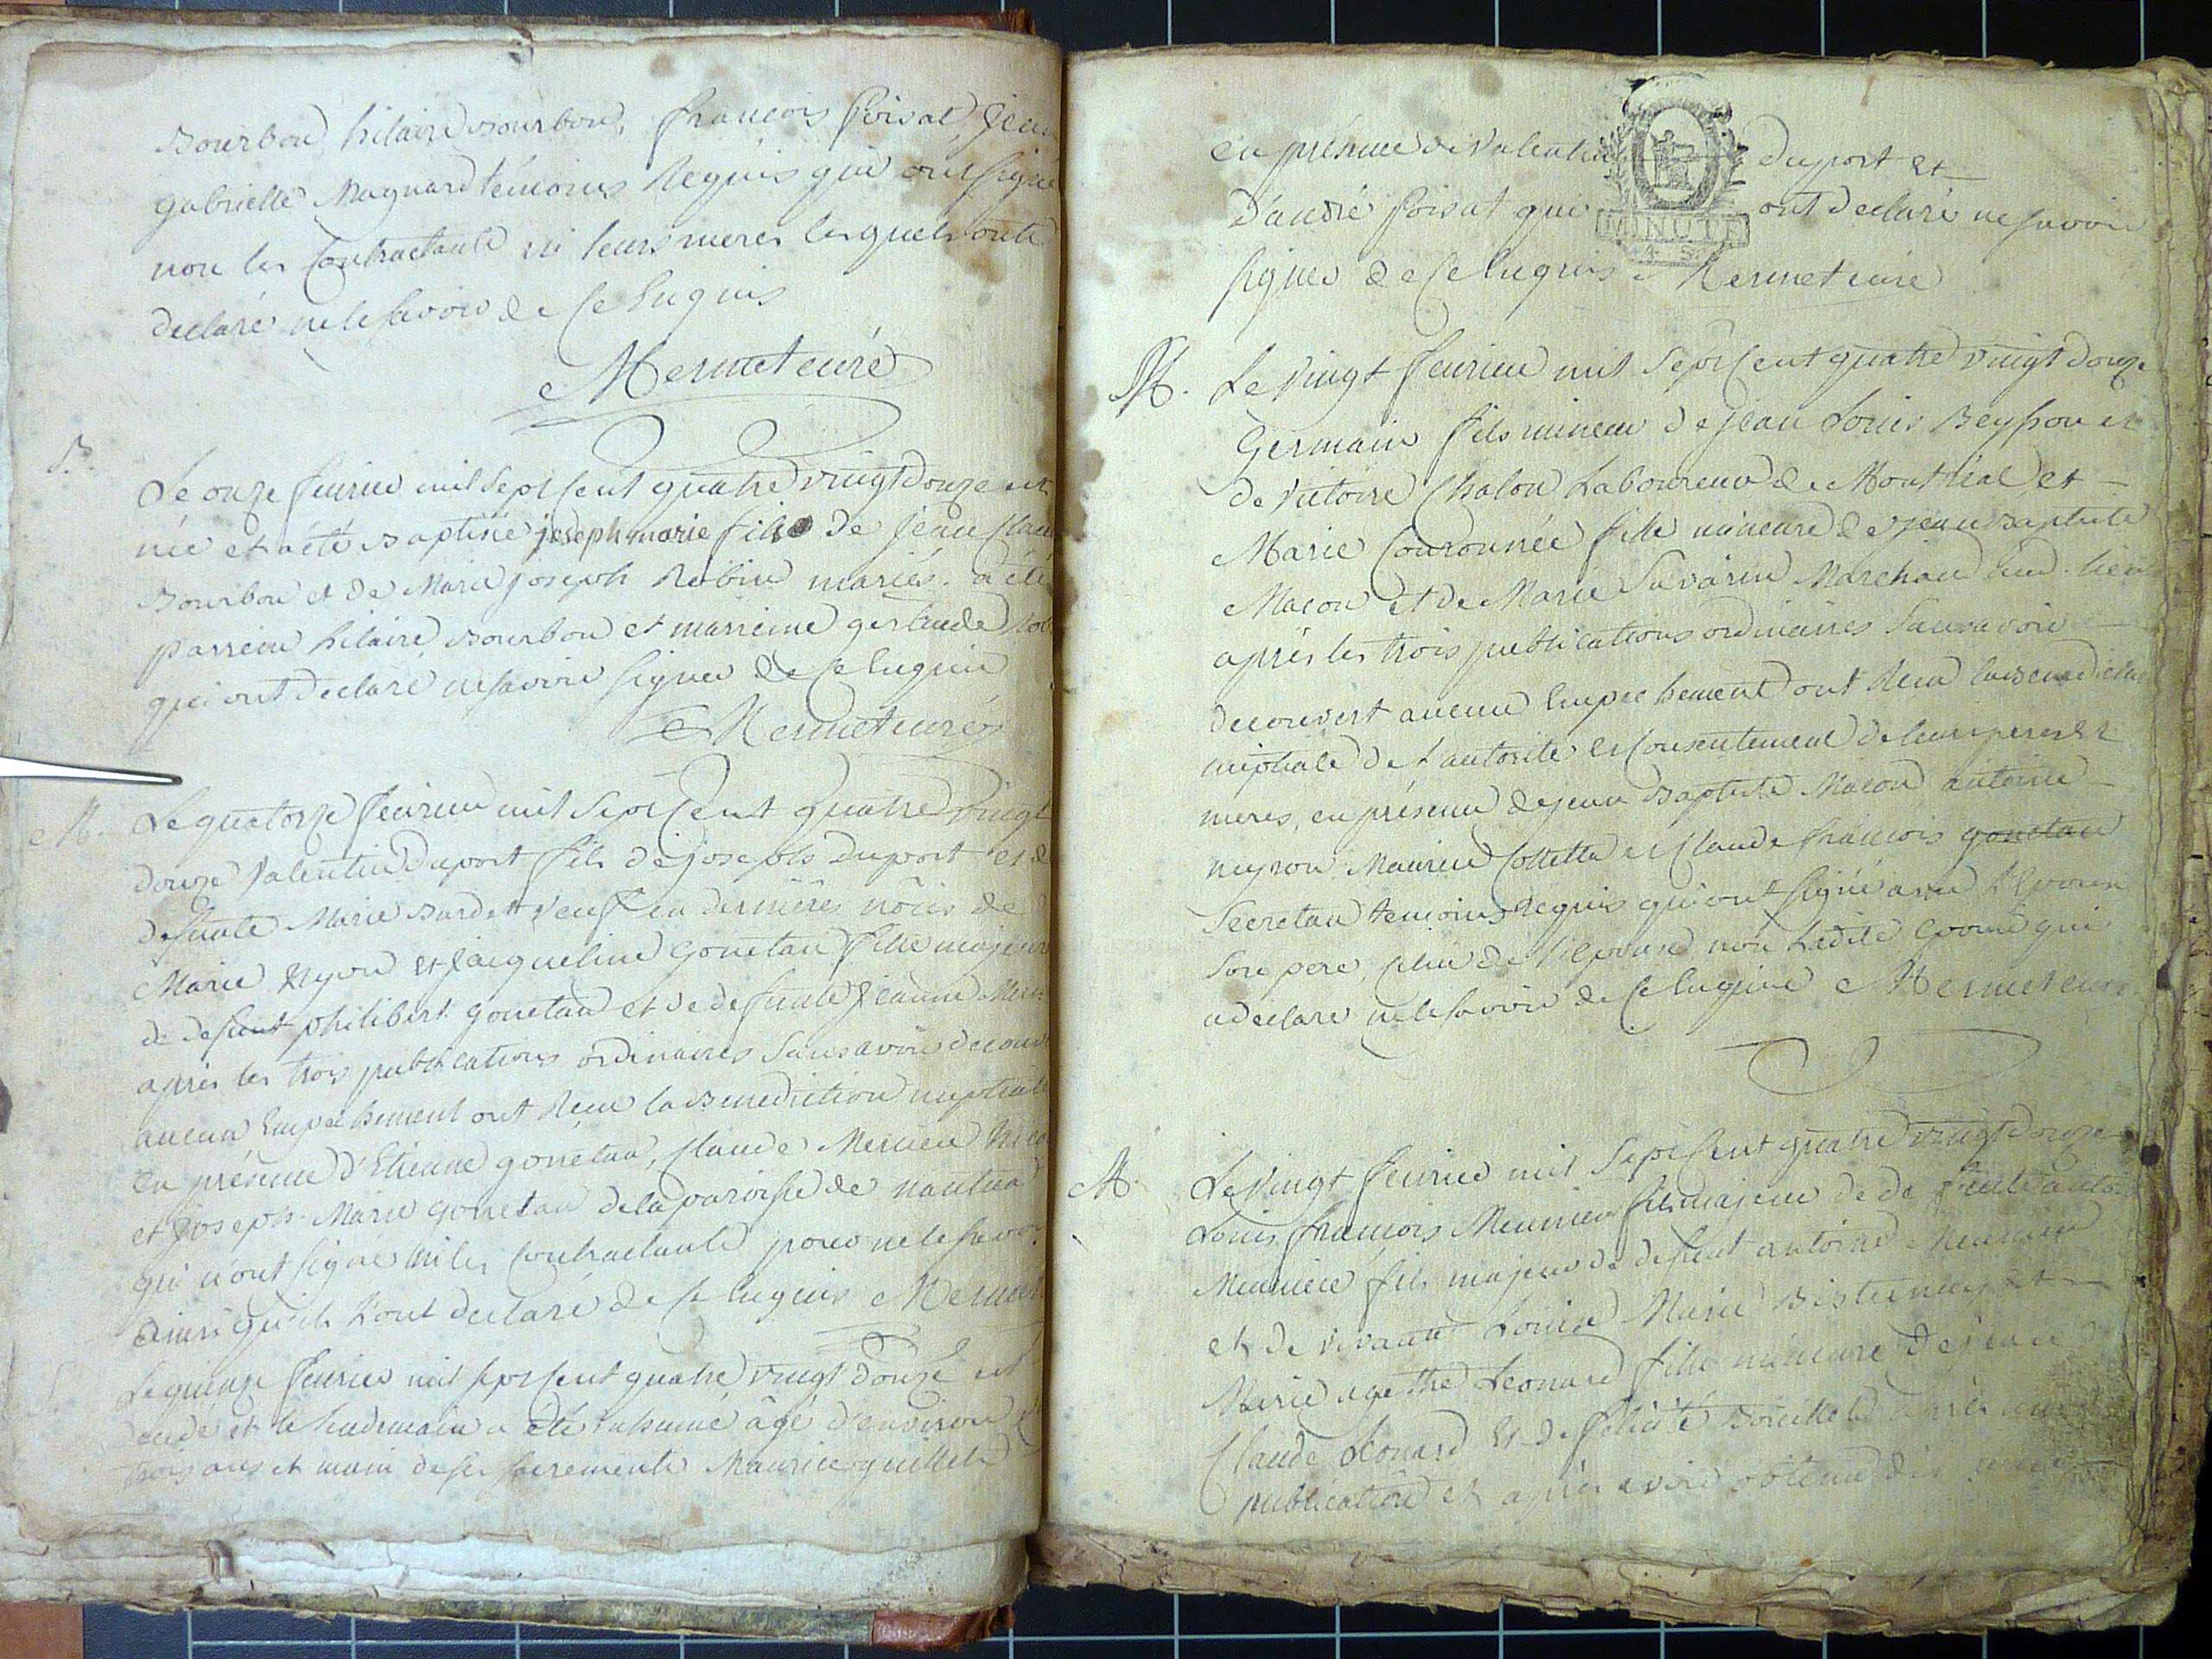 Bourbon hilaire Bourbon, françois poisat, jean
gabrielle Magnard témoins requis qui ont signé
non les contractants ni leurs meres lesquels ont
declaré ne le savoir de ce enquis
Mermet curé
B. Le onze fevrier mil sept cent quatre vingt douze est
née et a été Baptisé joseph marie fils de jean Clau
Bourbon et de Marie joseph Robin mariés. a été
parrein hilaire Bourbon et marreine gertrude Rob
qui ont declaré ne savoir signer de ce enquis
Mermet curé
M. Le quatorze fevrier mil sept cent quatre vingt
douze Valentin Duport fils de joseph Duport et de
defunte Marie veuf en dernières nôces de
Marie et jacqueline gonetan fille majeure
de defunt philibert gonetan et de defunte jeanne
après les trois publications ordinaires sans avoir decouv
aucun empechement ont reçu la Benediction nuptiale
en présence d'Etienne gonetan, Claude Mercier
et joseph-Marie gonetan de la paroisse de nantua
qui n'ont signé ni les contractants pour ne le savoir
ainsi qu'ils l'ont declaré de ce enquis Mermet
Le quinze fevrier mil sept cent quatre vingt douze est
decedé et le lendemain a été inhumé âgé d'environ
trois ans et muni de ses sacrements Maurice guillet
en présence de Valentin Duport et
D'andré poisat qui ont declaré ne savoir
MINUTE
signer de ce enquis Mermet curé
M. Le Vingt fevrier mil sept cent quatre vingt douze
Germain fils mineur de jean Louis Beysson et
de Victoire Chalon Laboureur de Montréal et
Marie Couronnée fille mineure de jean Baptiste
Macon et de Marie Savarin Marchand aud. lieu
après les trois publications ordinaires sans avoir
decouvert aucun empechement ont reçu la Benediction
nuptiale de l'autorité et consentement de leurs peres et
meres, en présence de jean Baptiste Macon antoine
neyron Maurice Colletta et Claude françois gonetan
Secretan temoins requis qui ont signé avec l'Epoux
son pere, celui de l'epouse non ladite Epouse qui
a declaré ne le savoir de ce enquise Mermet curé
M. Le Vingt fevrier mil sept cent quatre vingt douze
Louis françois Meunier fils majeur de defunt antoi
Meunier fils majeur de defunt antoine Meunier
et de vivante Louise Marie et
Marie agathe Leonard fille mineure de jean
Claude Leonard et de felicité Bouillet après une
publication et après avoir obtenu